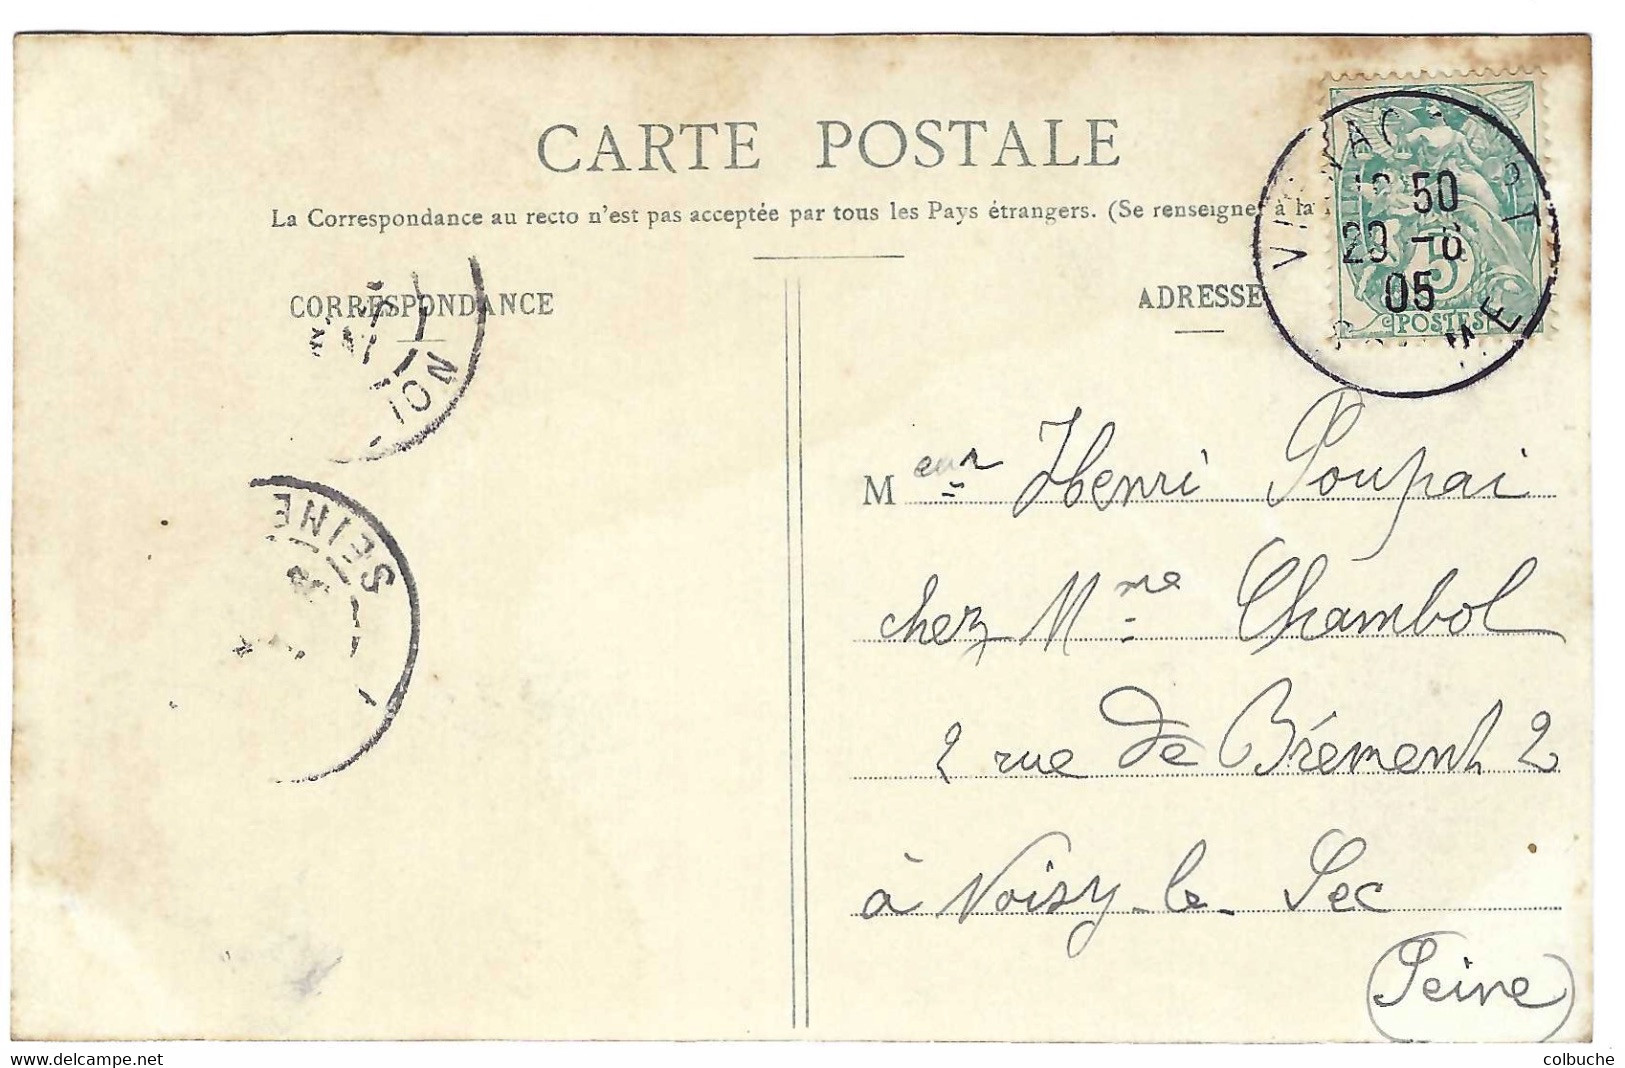 CARTE POSTALE
La Correspondance au recto n'est pas acceptée par tous les Pays étrangers. (Se renseigner à la
CORRESPONDANCE
ADRESSE
50
29 -6
05
5
POSTES
NOI
SEINE
Meur Henri Poupai
chez Mme Chambol
2 rue de Brément 2
à Noisy-le-Sec
(Seine)
delcampe.net
colbuche